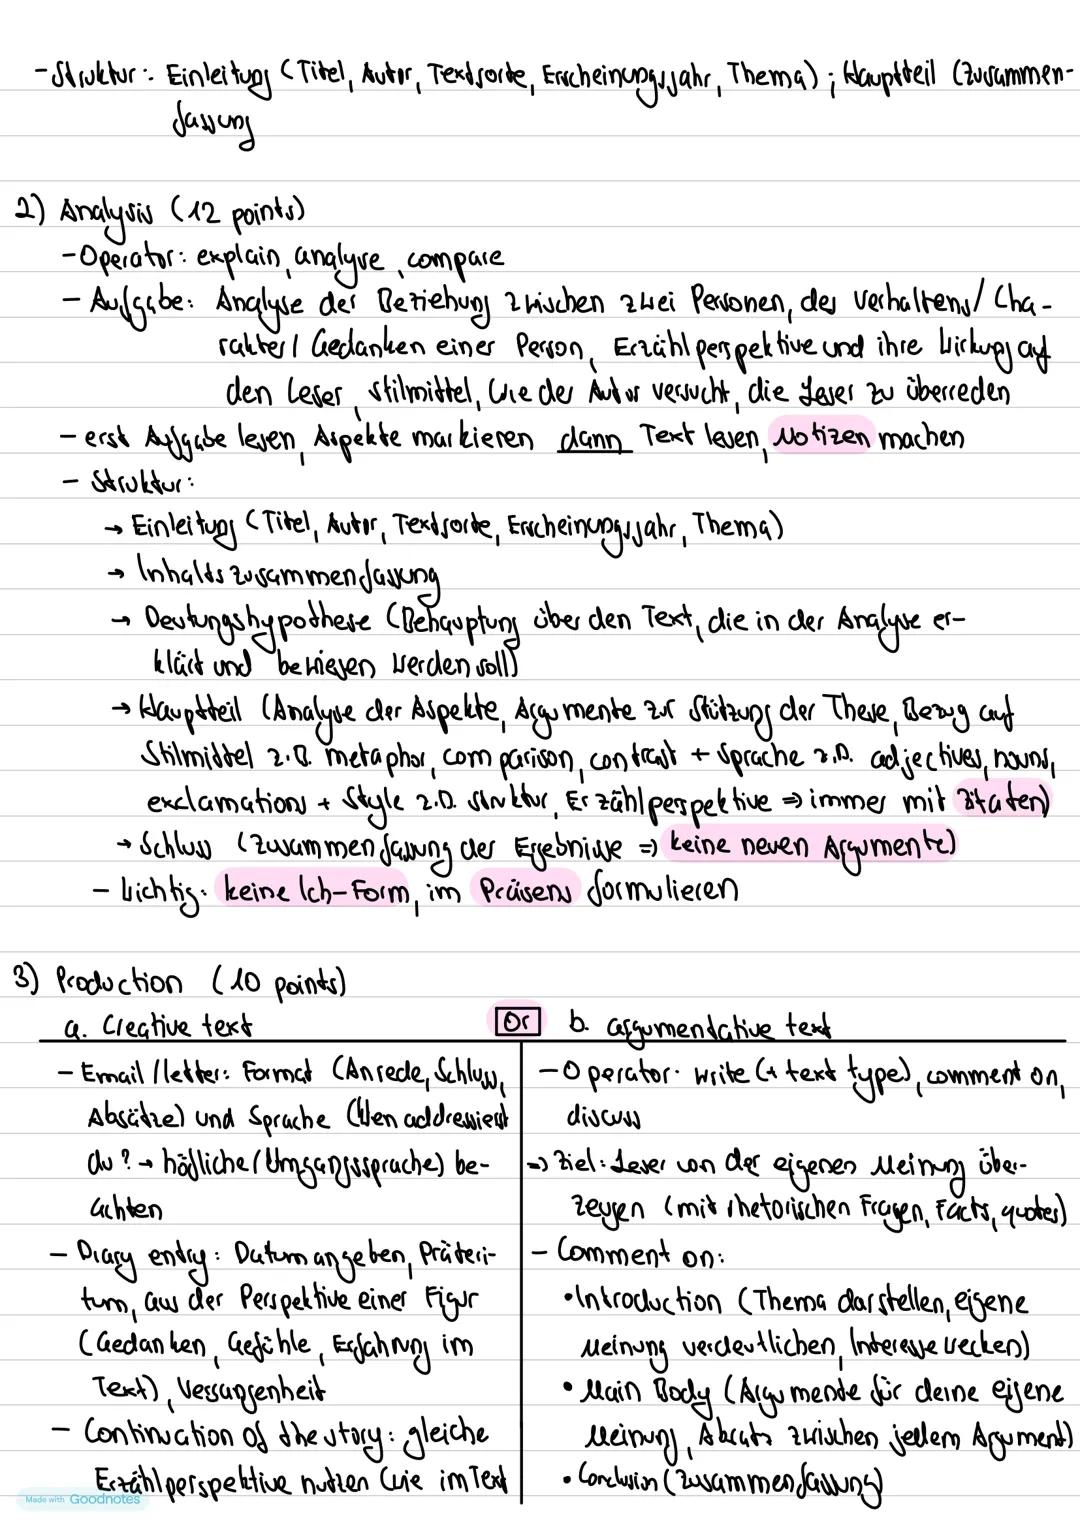 - Struktur: Einleitung (Titel, Autor, Textsorte, Erscheinungsjahr, Thema); Hauptteil (Zusammen-
fassung
2) Analysis (12 points)
- Operator: explain, analyse, compare
- Aufgabe: Analyse der Beziehung zwischen zwei Personen, des Verhaltens/ Cha-
rakter/ Gedanken einer Person, Erzählperspektive und ihre Wirkung auf
den Leser, Stilmittel, wie der Autor versucht, die Leser zu überreden
- erst Aufgabe lesen, Aspekte markieren dann Text lesen, Notizen machen
- Struktur:
→ Einleitung (Titel, Autor, Textsorte, Erscheinungsjahr, Thema)
→ Inhaltszusammenfassung
→ Deutungshypothese (Behauptung über den Text, die in der Analyse er-
klärt und bewiesen werden soll)
→ Hauptteil (Analyse der Aspekte, Argumente zur Stützung der These, Bezug auf
Stilmittel z.B. metaphor, comparison, contrast + Sprache z.B. adjectives, nouns,
exclamations + Style z.B. Struktur, Erzählperspektive => immer mit Zitaten)
→ Schluss (Zusammenfassung der Ergebnisse => keine neuen Argumente)
- Wichtig: keine Ich-Form, im Präsens formulieren
3) Production (10 points)
a. Creative text
Or
b. argumentative text
- Email/letter: Format (Anrede, Schluss,
Absätze) und Sprache (Wen addressierst
du? → höfliche/Umgangssprache) be-
achten
- Diary entry: Datum angeben, Präteri-
tum, aus der Perspektive einer Figur
(Gedanken, Gefühle, Erfahrung im
Text), Vergangenheit
- Continuation of the story: gleiche
Erzählperspektive nutzen wie im Text
- Operator: write (+ text type), comment on,
discuss
=> Ziel: Leser von der eigenen Meinung über-
zeugen (mit rhetorischen Fragen, Facts, quotes)
- Comment on:
• Introduction (Thema darstellen, eigene
Meinung verdeutlichen, Interesse wecken)
• Main Body (Argumente für deine eigene
Meinung, Absatz zwischen jedem Argument)
• Conclusion (Zusammenfassung)
Made with Goodnotes